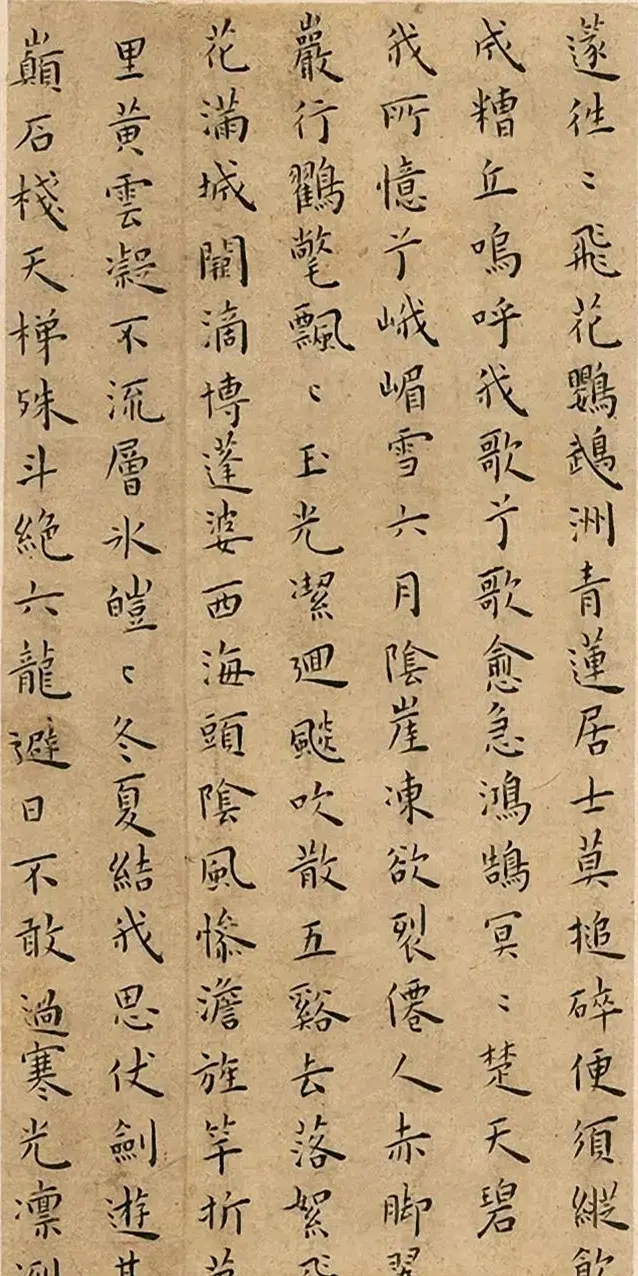 遂往〻飛花鸚鵡洲青蓮居士莫搥碎便須縱飲
成糟丘嗚呼我歌兮歌愈急鴻鵠冥〻楚天碧
我所憶兮峨嵋雪六月陰崖凍欲裂僊人赤脚翠
巖行鸖氅飄〻玉光潔迴飈吹散五谿去落絮飛
花滿城闕滴博蓬婆西海頭陰風慘澹旌竿折萬
里黃雲凝不流層氷皚〻冬夏結我思伏劍遊其
巔石棧天梯殊斗絕六龍避日不敢過寒光凜冽